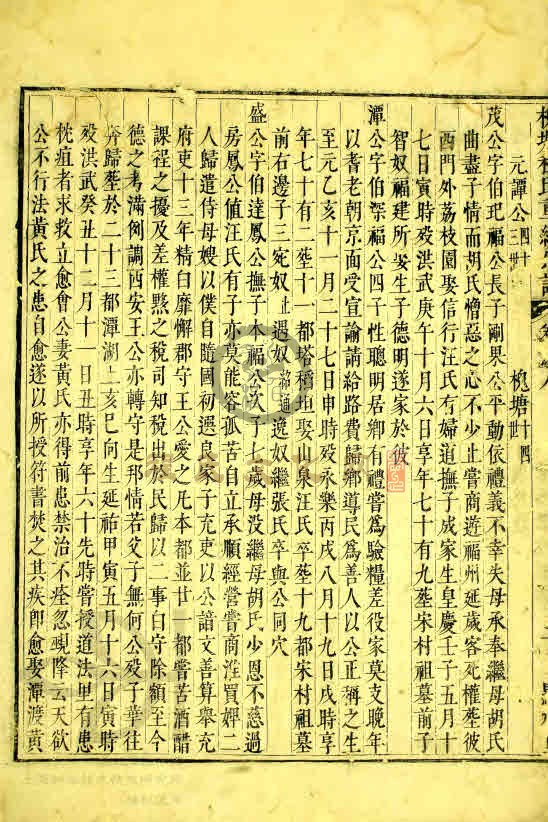 元譚公四十三世　槐塘十四世
茂公字伯玘福公長子剛果公平動依禮義不幸失母承奉繼母胡氏
曲盡子情而胡氏憎惡之心不少止嘗商遊福州延歲客死權塟彼
西門外荔枝園娶信行汪氏有婦道撫子成家生皇慶壬子五月十
七日寅時殁洪武庚午十月六日享年七十有九塟宋村祖墓前子
智奴福建所娶生子德明遂家於彼
潭公字伯深福公四子性聰明居鄉有禮嘗為驗糧差役家莫支晚年
以耆老朝京面受宣諭請給路費歸鄉導民為善人以公正稱之生
至元乙亥十一月二十七日申時殁永樂丙戌八月十九日戌時享
年七十有二塟十一都塔稻坵娶山泉汪氏卒塟十九都宋村祖墓
前右邊子三宛奴止遇奴綿通逸奴繼張氏卒與公同穴
盛公字伯達鳳公撫子本福公次子七歲母没繼母胡氏少恩不慈過
房鳳公值汪氏有子亦莫能容孤苦自立承順經營嘗商淮買婢二
人歸遣侍母嫂以僕自隨國初選良家子充吏以公諳文善算舉充
府吏十三年精白靡懈郡守王公愛之凡本都並廿一都嘗苦酒醋
課程之擾及差權黙之稅司知稅出於民歸以二事白守除額至今
德之考滿例調西安王公亦轉守是邦情若父子無何公殁子華往
奔歸塟於二十三都潭湖上亥巳向生延祐甲寅五月十六日寅時
殁洪武癸丑十二月十一日丑時享年六十先時嘗授道法里有患
枕疽者求救立愈會公妻黃氏亦得前患禁治不痊忽覡降云天欲
公不行法黃氏之患自愈遂以所授符書焚之其疾即愈娶潭渡黃